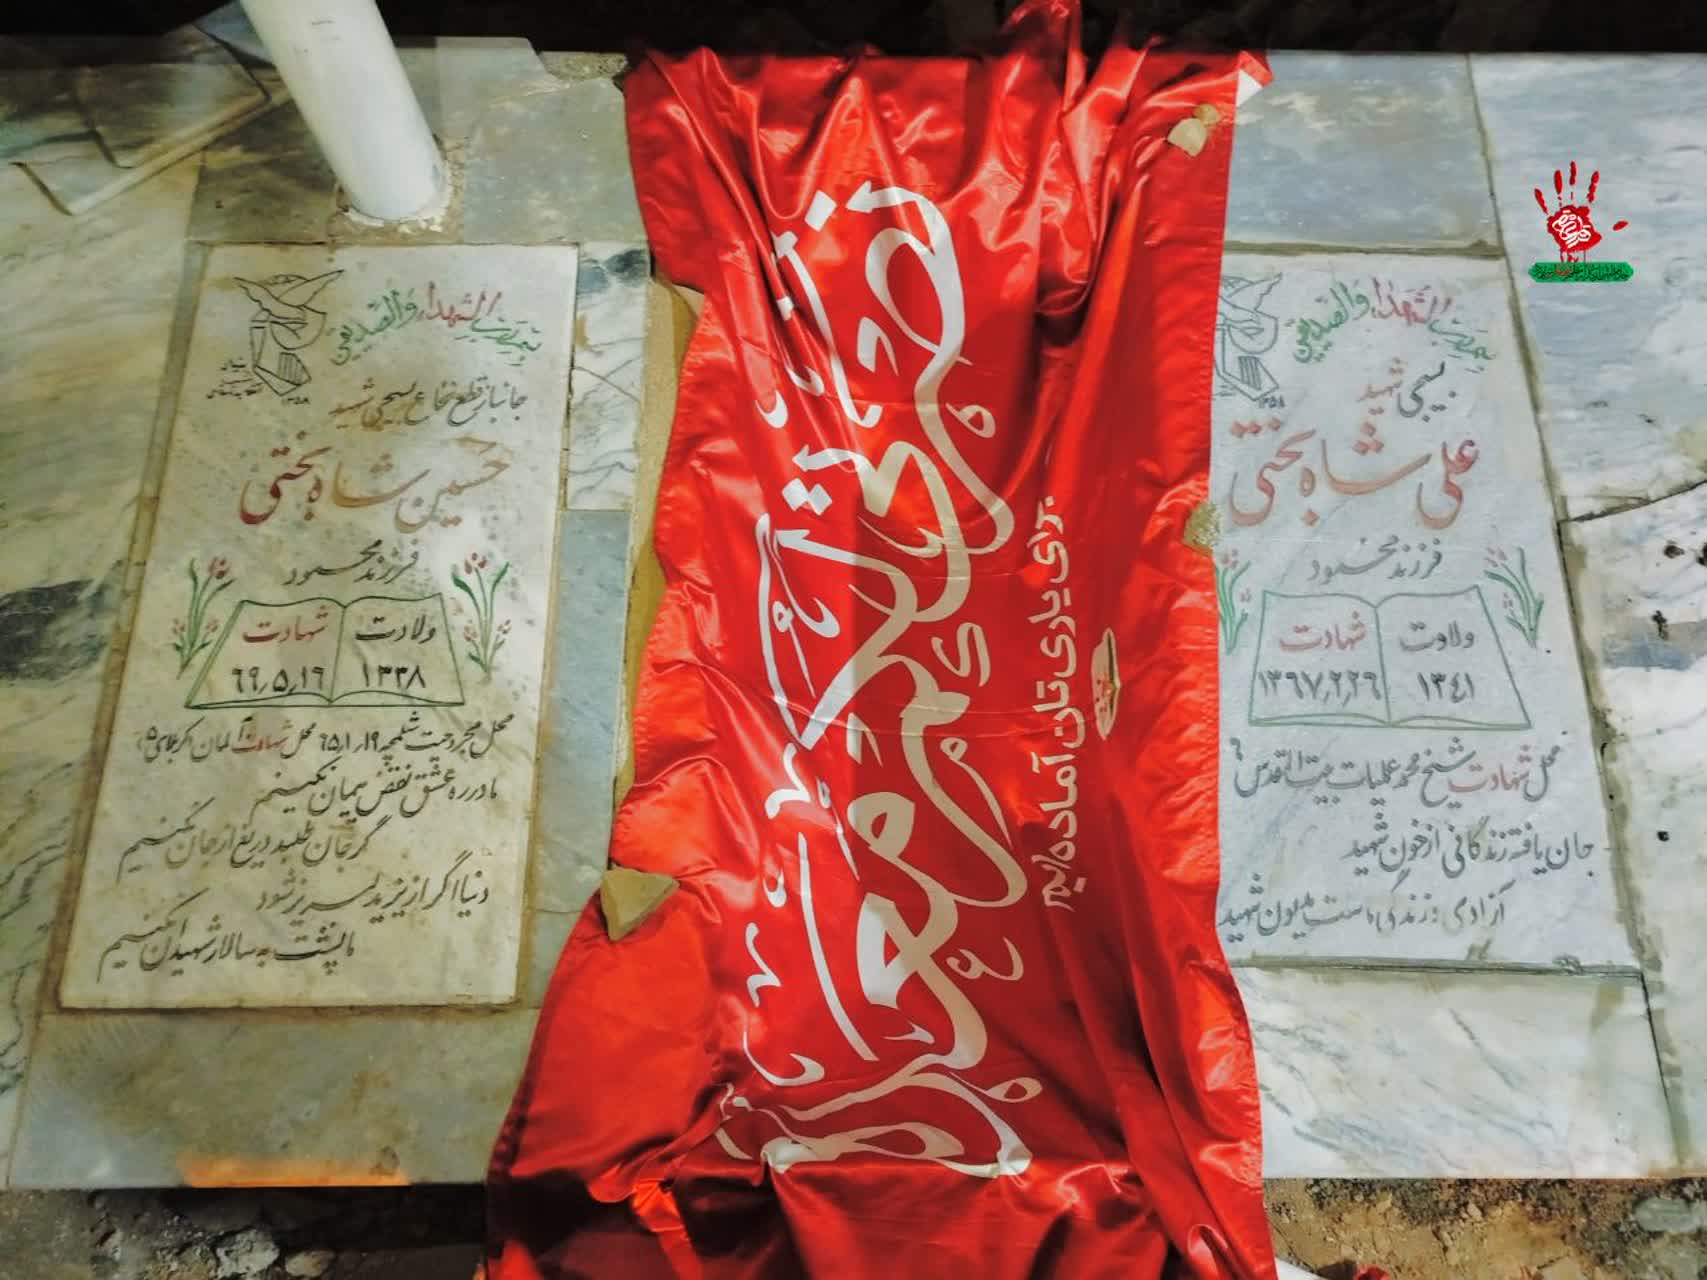 بسم رب الشهداء والصدیقین
جانباز قطع نخاع بسیجی شهید
حسین شاه بختی
فرزند محمود
ولادت
۱۳۳۸
شهادت
۶۹٫۵٫۱۶
محل مجروحیت شلمچه ۶۵٫۱۰٫۱۹ محل شهادت آلمان کربلای ۵
ما در ره عشق نقض پیمان نکنیم
گر جان طلبد دریغ از جان نکنیم
دنیا اگر از یزید لبریز شود
ما پشت به سالار شهیدان نکنیم
برای یاری تان آماده ایم
بسم رب الشهداء والصدیقین
۱۳۵۸
بسیجی شهید
علی شاه بختی
فرزند محمود
ولادت
۱۳۴۱
شهادت
۱۳۶۷٫۲٫۲۶
محل شهادت شیخ محمد عملیات بیت المقدس ۶
جان یافته زندگانی از خون شهید
آزادی و زندگی ماست مدیون شهید